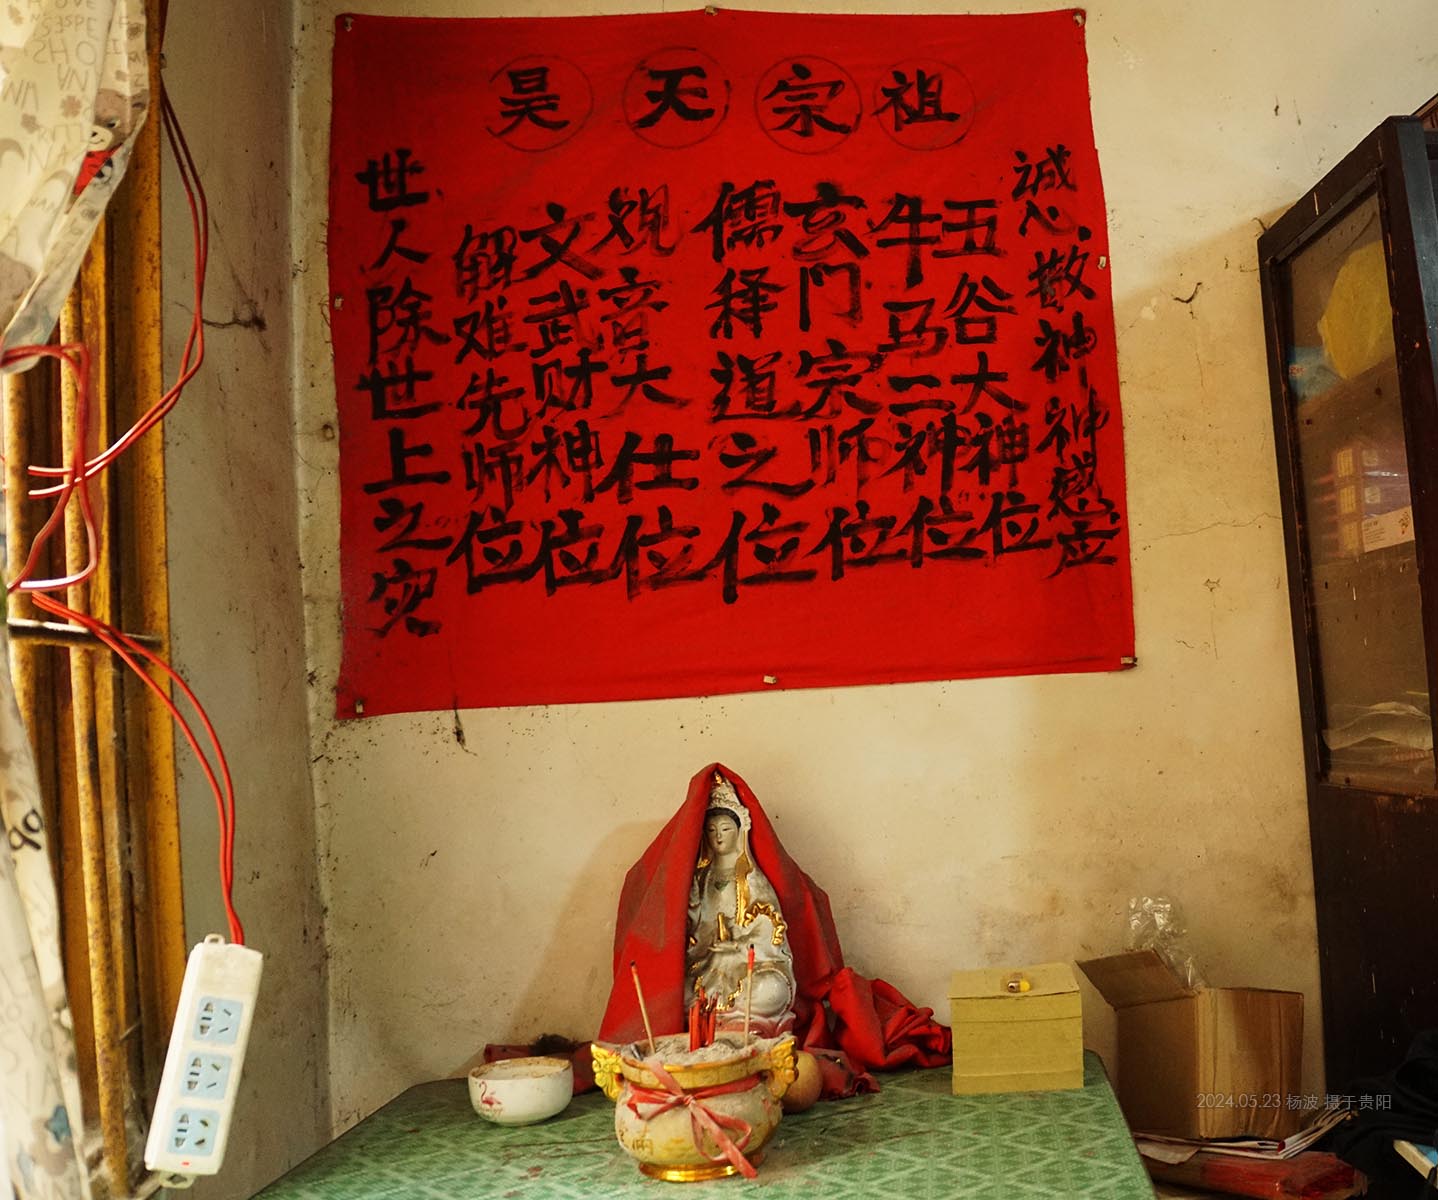 昊天宗祖
誠心敬神神感应
五谷大神位
牛马二神位
玄门宗师位
儒释道之位
观音大仕位
文武财神位
解难先师位
世人除世上之灾
2024.05.23 杨波 摄于贵阳